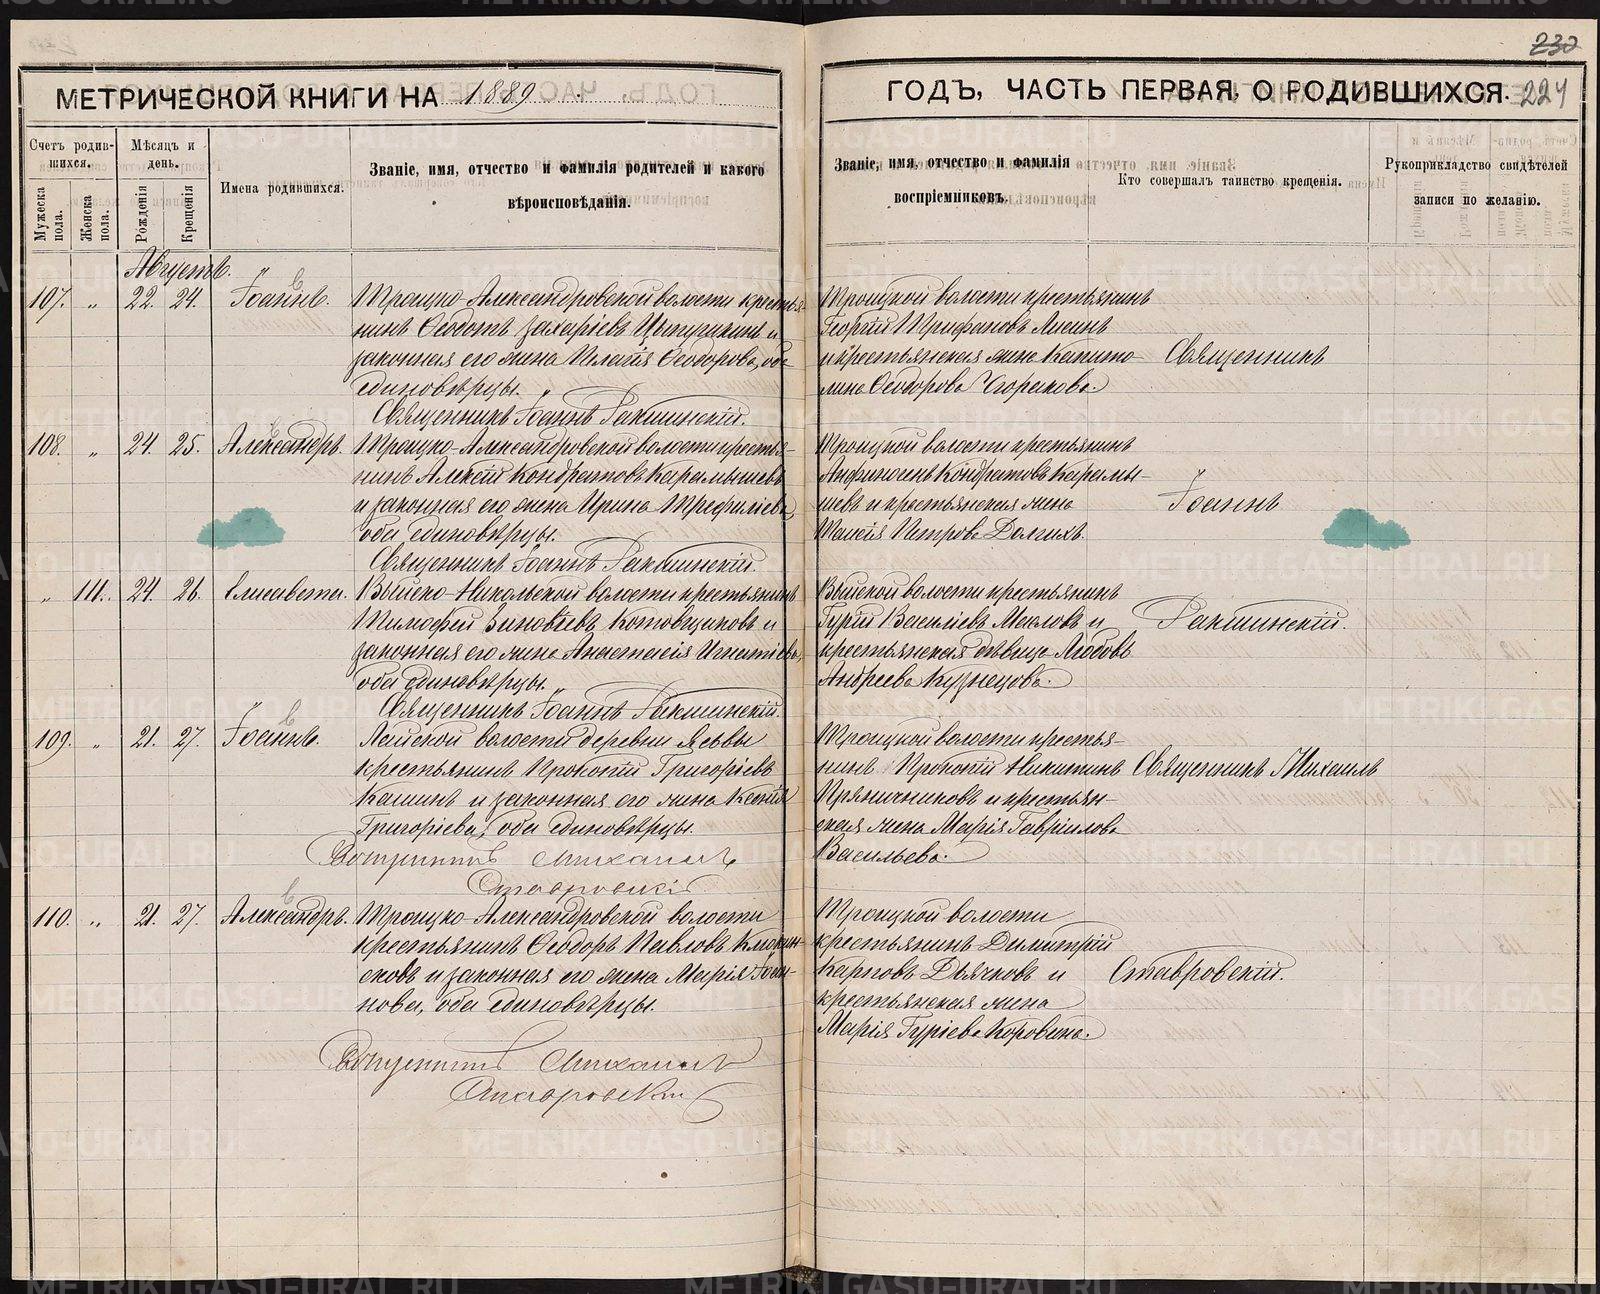 230
МЕТРИЧЕСКОЙ КНИГИ НА 1889
ГОДЪ, ЧАСТЬ ПЕРВАЯ, О РОДИВШИХСЯ. 224
Счетъ родив-
шихся.
Мужеска пола.
Женска пола.
Мѣсяцъ и
день.
Рожденія
Крещенія
Имена родившихся.
Званіе, имя, отчество и фамилія родителей и какого
вѣроисповѣданія.
Званіе, имя, отчество и фамилія
воспріемниковъ.
Кто совершалъ таинство крещенія.
Рукоприкладство свидѣтелей
записи по желанію.
Августъ.
107. „ 22. 24. Іоаннъ.
Троицко-Александровской волости крестья-
нинъ Ѳеодотъ Захаріевъ Цыпушкинъ и
законная его жена Пелагія Ѳеодорова, оба
единовѣрцы.
Священникъ Іоаннъ Ракшинскій.
Троицкой волости крестьянинъ
Георгій Трифановъ Лисинъ
и крестьянская жена Капито-
лина Ѳеодорова
Священникъ
108. „ 24. 25. Александръ.
Троицко-Александровской волости крестья-
нинъ Алексій Кондратовъ Карамышевъ
и законная его жена Ирина Трефиліева,
оба единовѣрцы.
Священникъ Іоаннъ Ракшинскій.
Троицкой волости крестьянинъ
Анфиногенъ Кондратовъ Карамы-
шевъ и крестьянская жена
Таисія Петрова Долгихъ.
Іоаннъ
„ 111. 24. 26. Елисавета.
Выйско-Никольской волости крестьянинъ
Тимофей Зиновьевъ Котовщиковъ и
законная его жена Анастасія Игнатіева,
оба единовѣрцы.
Священникъ Іоаннъ Ракшинскій.
Выйской волости крестьянинъ
Гурій Василіевъ Масловъ и
крестьянская дѣвица Любовь
Андреева Кузнецова.
Ракшинскій.
109. „ 21. 27. Іоаннъ.
Лайской волости деревни Ясьвы
крестьянинъ Прокопій Григоріевъ
Кашинъ и законная его жена Ксенія
Григоріева, оба единовѣрцы.
Михаилъ
Ставровскій
Троицкой волости крестья-
нинъ Прокопій Никитинъ
Пряничниковъ и крестьян-
ская жена Марія Гавріилова
Васильева.
Священникъ Михаилъ
110. „ 21. 27. Александръ.
Троицко-Александровской волости
крестьянинъ Ѳеодоръ Павловъ
и законная его жена Марія Іоан-
нова, оба единовѣрцы.
Михаилъ
Ставровскій
Троицкой волости
крестьянинъ Димитрій
Карповъ Дьячковъ и
крестьянская жена
Марія Гуріева Коровина.
Ставровскій.
METRIKI.GASO-URAL.RU